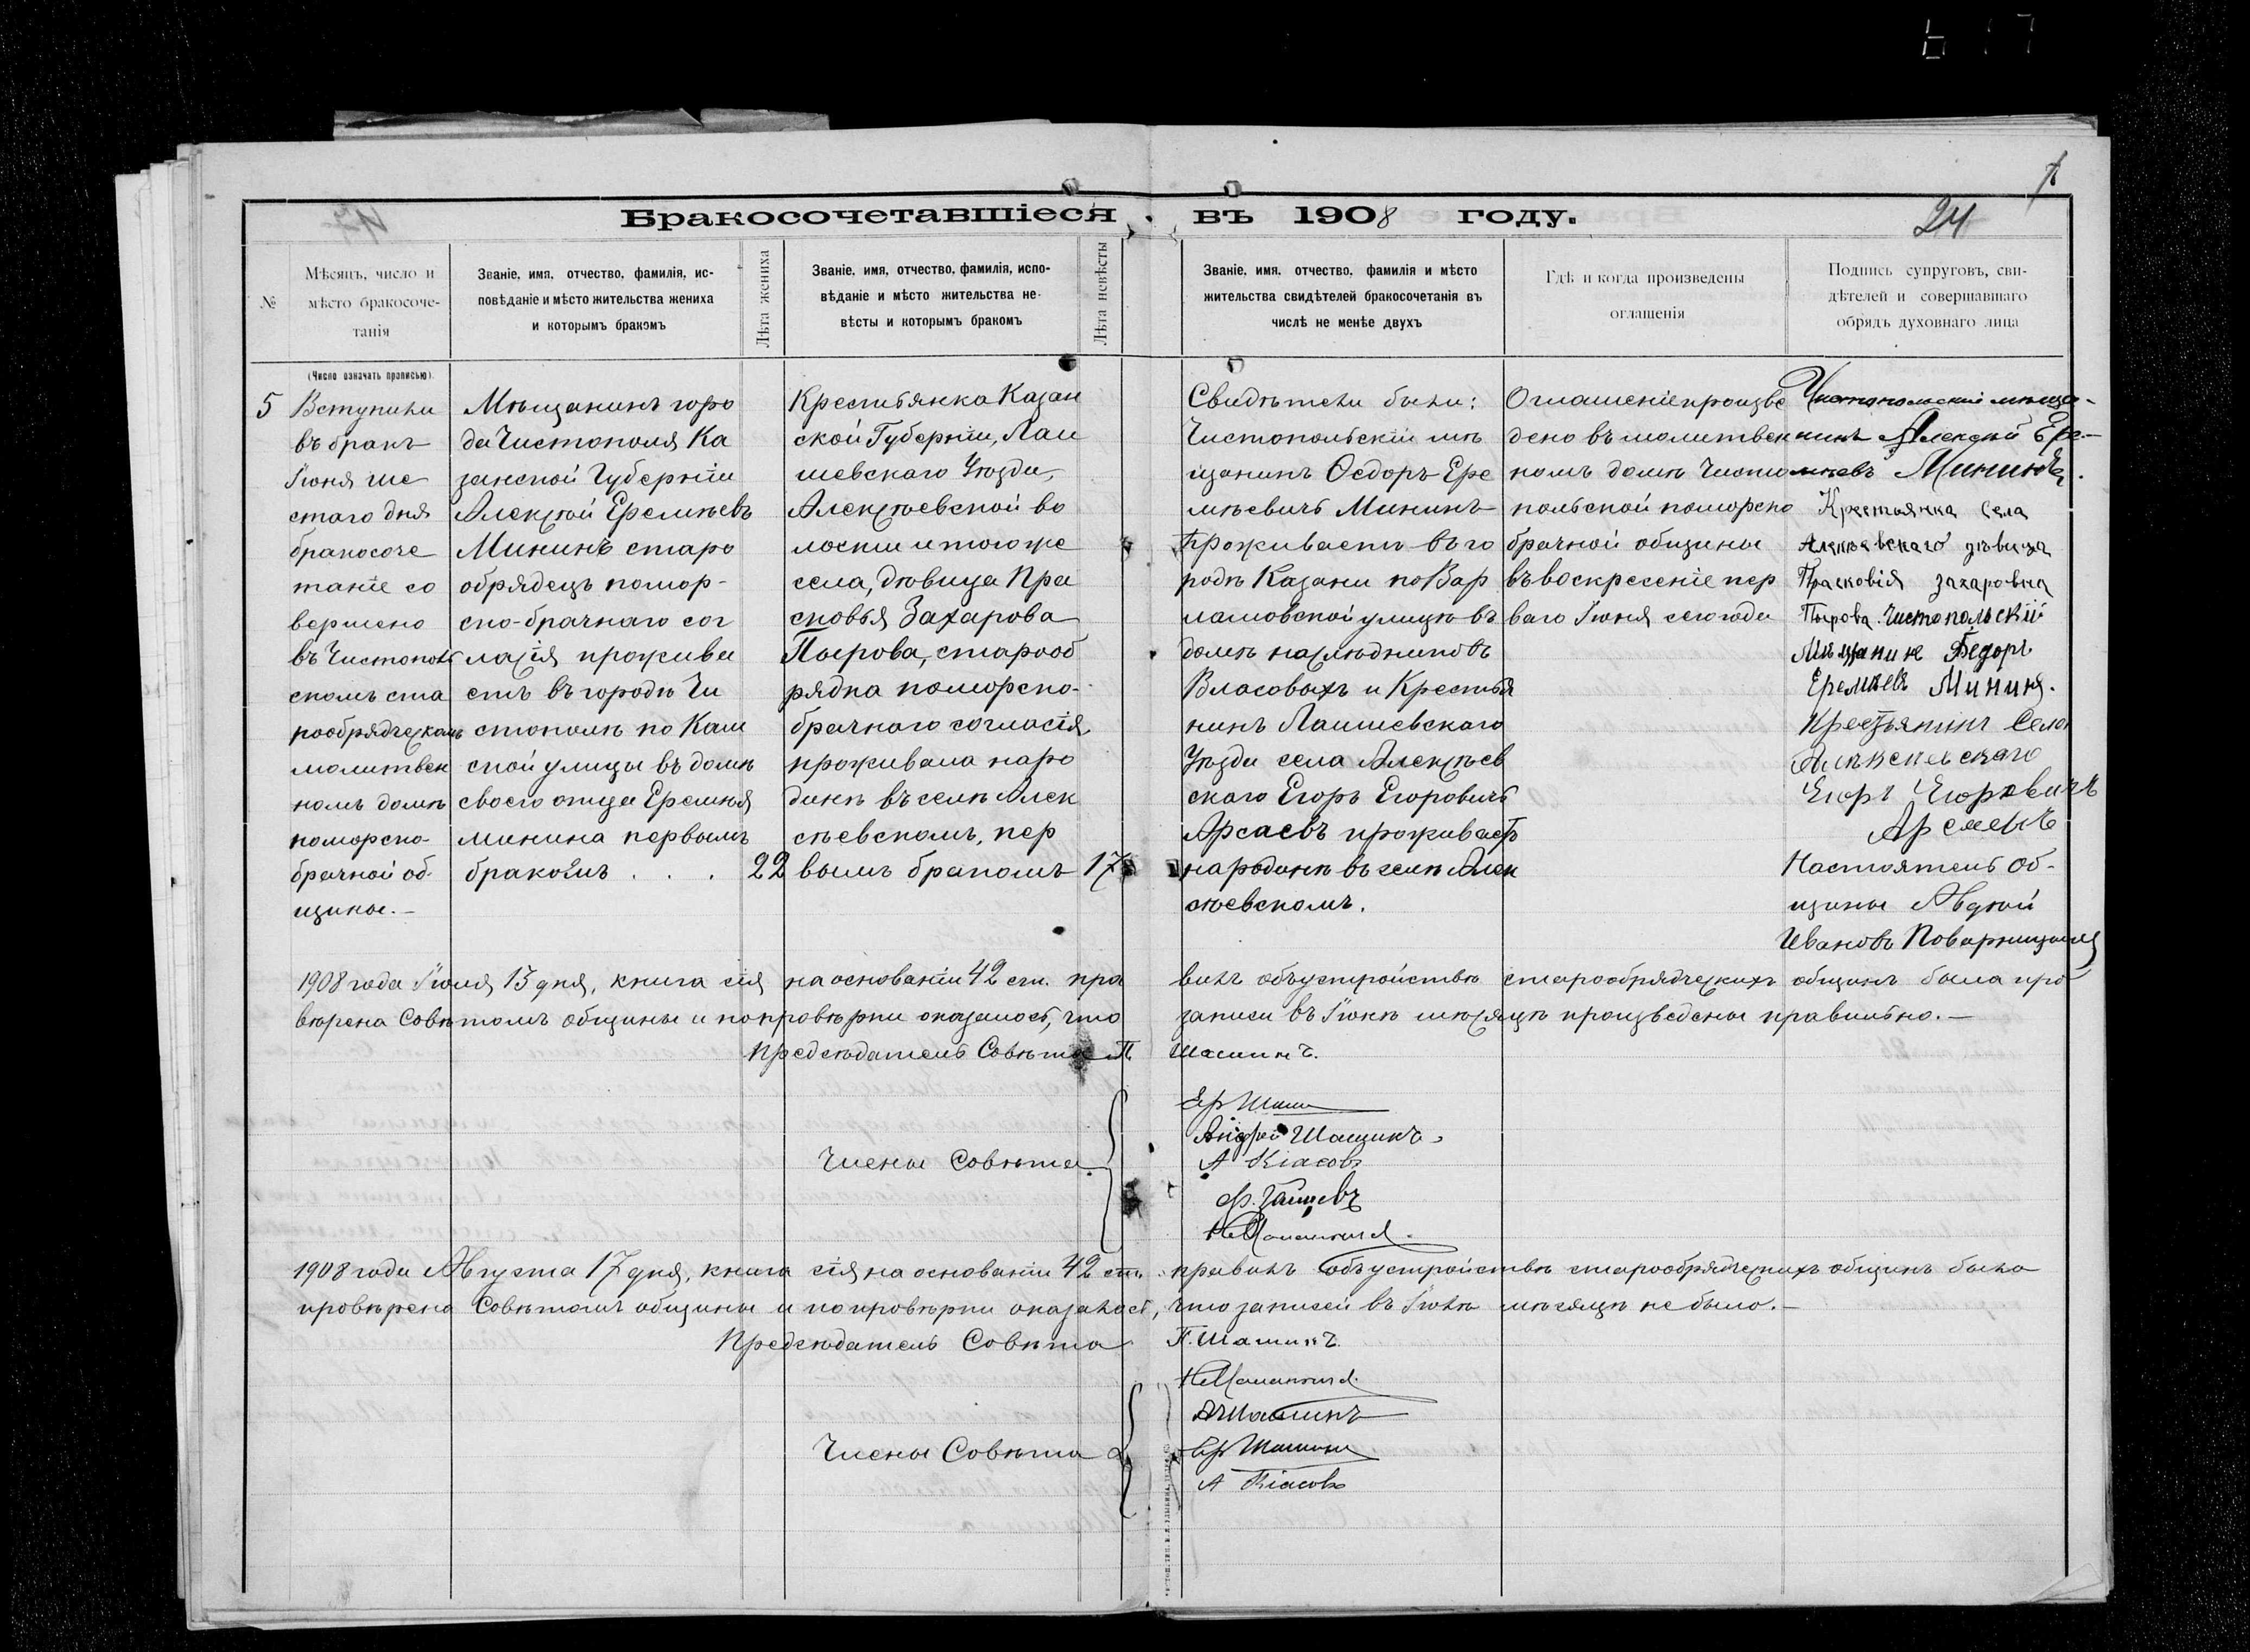 24
Бракосочетавшіеся въ 1908 году.
№
Мѣсяцъ, число и
мѣсто бракосоче-
танія
Званіе, имя, отчество, фамилія, ис-
повѣданіе и мѣсто жительства жениха
и которымъ бракомъ
Лѣта жениха
Званіе, имя, отчество, фамилія, испо-
вѣданіе и мѣсто жительства не-
вѣсты и которымъ бракомъ
Лѣта невѣсты
Званіе, имя, отчество, фамилія и мѣсто
жительства свидѣтелей бракосочетанія въ
числѣ не менѣе двухъ
Гдѣ и когда произведены
оглашенія
Подпись супруговъ, сви-
дѣтелей и совершавшаго
обрядъ духовнаго лица
(Число означать прописью).
5
Вступили
въ бракъ
Іюня ше
стаго дня
бракосоче
таніе со
вершено
въ Чистополь
скомъ ста
рообрядческомъ
молитвен
номъ домѣ
поморско-
брачной об-
щины.–
Мѣщанинъ горо
да Чистополя Ка
занской Губерніи
Алексѣй Еремѣевъ
Мининъ старо
обрядецъ помор-
ско-брачнаго сог
ласія, прожива
етъ въ городѣ Чи
стополѣ по Кам
ской улицы въ домѣ
своего отца Еремѣя
минина первымъ
бракомъ . . . 22
Крестьянка Казан
ской Губерніи, Лаи
шевскаго Уѣзда,
Алексѣевской во
лости и того же
села, дѣвица Пра
сковья Захарова
Пырова, старооб
рядка поморско-
брачнаго согласія,
проживала на ро
динѣ въ селѣ Алек
сѣевскомъ, пер
вымъ бракомъ 17
Свидѣтели были:
Чистопольскій мѣ
щанинъ Ѳедоръ Ере
мѣевичъ Мининъ
проживаетъ въ го
родѣ Казани по Вар
ламовской улицѣ въ
домѣ наслѣдниковъ
Власовыхъ и Крестья
нинъ Лаишевскаго
Уѣзда села Алексѣев
скаго Егоръ Егоровичъ
Арсаевъ проживаетъ
на родинѣ въ селѣ Алек
сѣевскомъ.
Оглашеніе произве
дено въ молитвен
номъ домѣ Чисто
польской поморско
брачной общины
въ воскресеніе пер
ваго Іюня сего года
Чистопольский мѣща-
нинъ Алексѣй Ере-
мѣевъ Мининъ.
Крестьянка Села
Алексѣевскаго дѣвица
Прасковія захаровна
Пырова. Чистопольскій
Мѣщанинъ Федоръ
Еремѣевъ Мининъ.
Крестьянинъ Села
Алѣксеевскаго
Егоръ Егоровичъ
Арсаевъ
Настоятель об-
щины Авдѣй
Ивановъ Поварницынъ
1908 года Іюля, 13 дня, книга сія на основаніи 42 ст. пра
вилъ объ устройствѣ старообрядческихъ общинъ была про
вѣрена Совѣтомъ общины и по провѣрки оказалось, что
записи въ Іюнѣ мѣсяцѣ произведены правильно.–
Предсѣдатель Совѣта П Шашинъ.
Члены Совѣта
Андрей Шашинъ.
А Кіасовъ
1908 года Августа 17 дня, книга сія на основаніи 42 ст. правилъ объ устройствѣ старообрядческихъ общинъ была
провѣрена Совѣтомъ общины и по провѣрки оказалось, что записей въ Іюлѣ мѣсяцѣ не было.–
Предсѣдатель Совѣта П. Шашинъ.
Члены Совѣта
А Шашинъ
А Кіасовъ